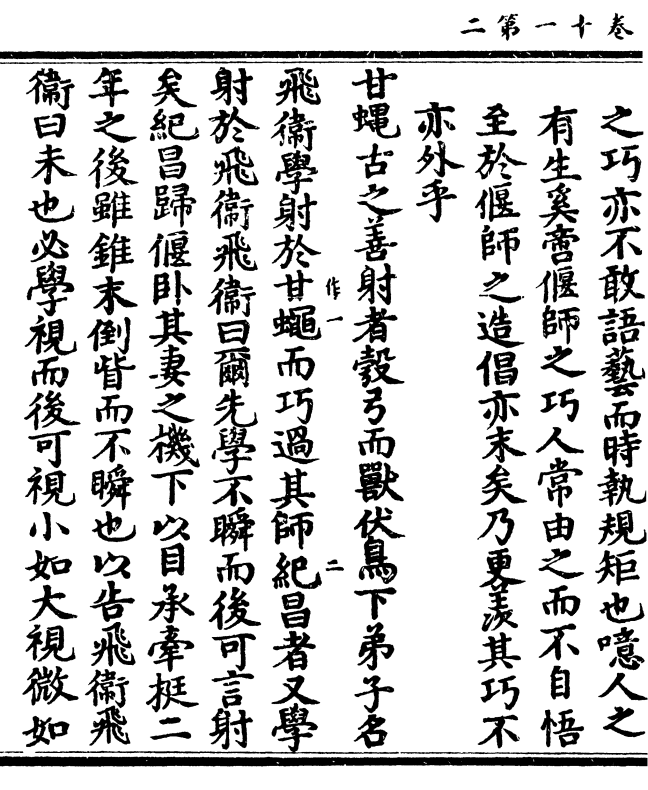 卷十一第二
之巧亦不敢語藝而時執規矩也噫人之
有生奚啻偃師之巧人常由之而不自悟
至於偃師之造倡亦末矣乃更羨其巧不
亦外乎
甘蝿古之善射者彀弓而獸伏鳥下弟子名
飛衛學射於甘蠅而巧過其師紀昌者又學
作一
二
射於飛衛飛衛曰爾先學不瞬而後可言射
矣紀昌歸偃卧其妻之機下以目承牽挺二
年之後雖錐末倒眥而不瞬也以告飛衛飛
衛曰未也必學視而後可視小如大視微如